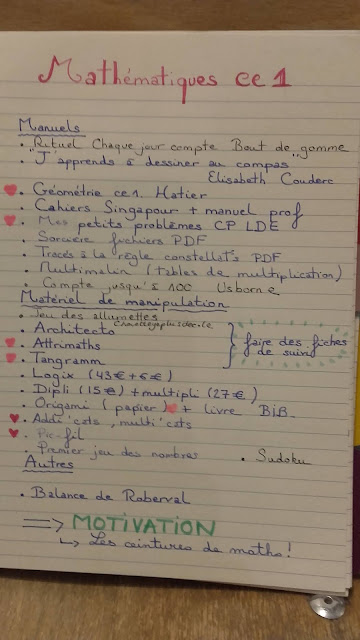 Mathématiques ce1
Manuels
. Rituel Chaque jour compte Bout de gomme
. "J'apprends à dessiner au compas"
Elisabeth Couderc
. Géométrie ce1. Hatier
. Cahiers Singapour + manuel prof
. Mes petits problèmes CP LDE
. Sorcière fichiers PDF
. Tracés à la règle constellat°s PDF
. Multimalin (tables de multiplication)
. Compte jusqu'à 100 Usborne
Matériel de manipulation
. Jeu des allumettes
. Architecto
. Attrimaths
. Tangramm
faire des fiches
de suivi
. Logix (43€ + 6€)
. Dipli (15€) + multipli (27€)
. Origami (papier) + livre BIB.
. Addi'cats, multi'cats
. Pic-fil
. Premier jeu des nombres
. Sudoku
Autres
. Balance de Roberval
=> MOTIVATION
↳ Les ceintures de maths!